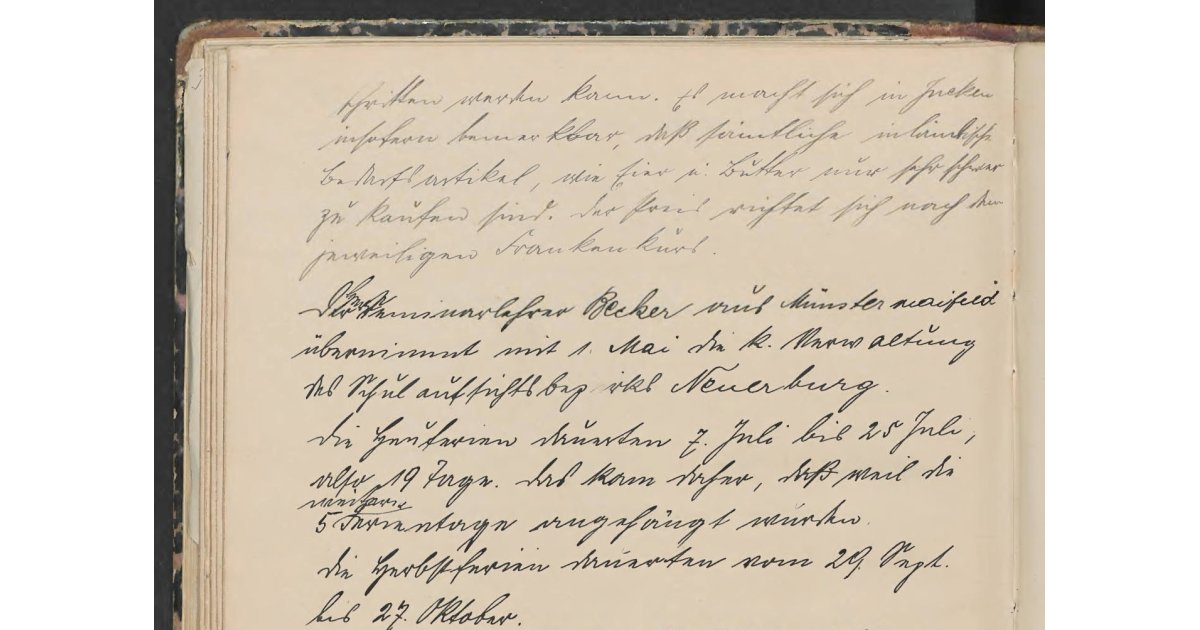 schritten werden kann. Es macht sich in Jucken
insofern bemerkbar, daß sämtliche inländische
Bedarfsartikel, wie Eier u. Butter nur sehr schwer
zu kaufen sind. Der Preis richtet sich nach dem
jeweiligen Frankenkurs.
Der Herr Seminarlehrer Becker aus Münstermaifeld
übernimmt mit 1. Mai die k. Verwaltung
des Schulaufsichtsbezirks Neuerburg.
Die Heuferien dauerten 7. Juli bis 25 Juli,
also 19 Tage. Das kam daher, daß weil die
5 Ferientage angehängt wurden.
Die Herbstferien dauerten vom 29. Sept.
bis 27. Oktober.